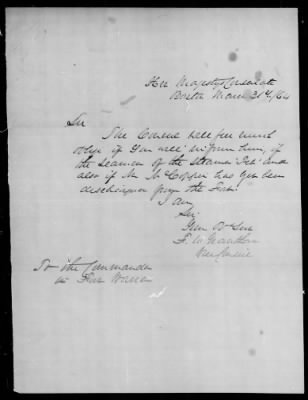 Her Majestys Consulate
Boston March 31st/64
Sir
The Consul will feel much
oblig'd if You will inform him, if
the Seamen of the Steamer and
also if Mr. M. Cooper has yet been
discharged from the Fort.
I am
Sir,
Your Ob Serv
F. W.
Vice Consul
To the Commander
in Fort Warren